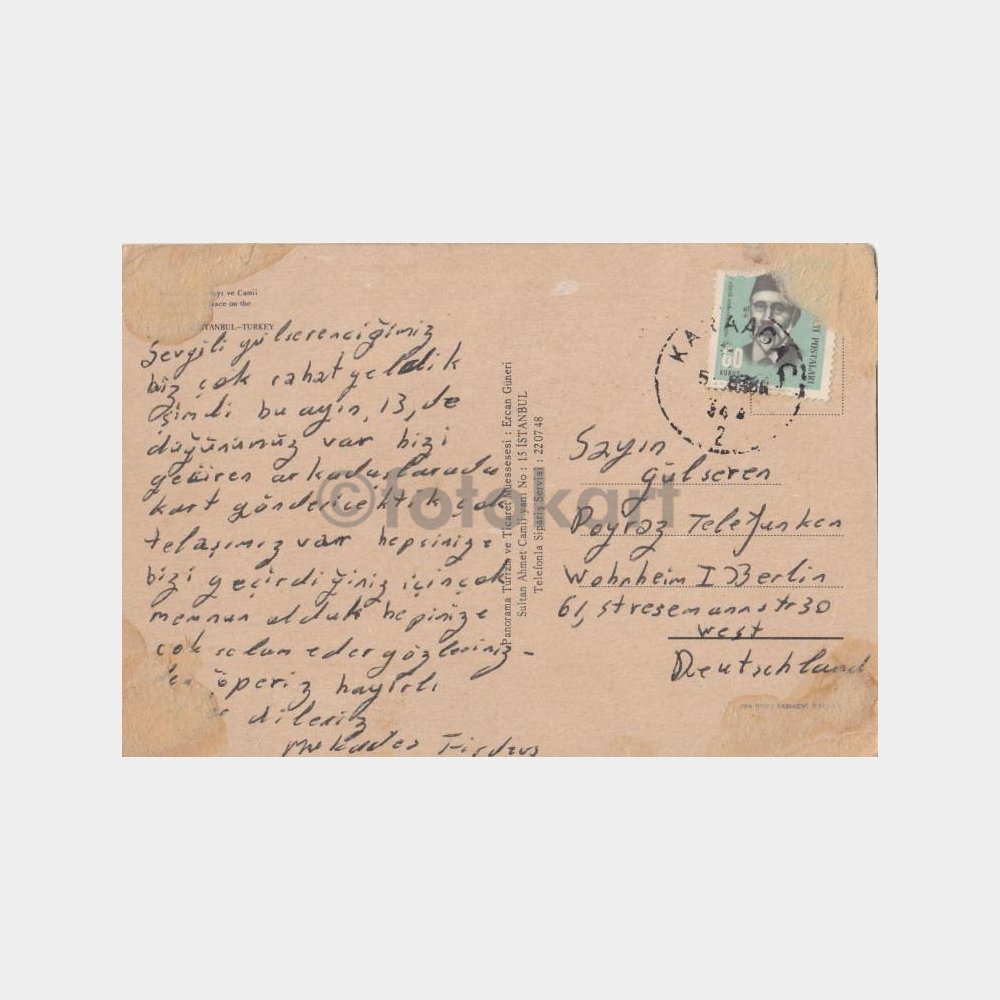 yı ve Camii
lace on the
STANBUL-TURKEY
Sevgili gülserenciğimiz
biz çok rahat geldik
şimdi bu ayın, 13, de
düğünümüz var bizi
geçiren arkadaşlarada
kart göndericektik çok
telaşımız var hepinize
bizi geçirdiğiniz için çok
memnun olduk hepinize
çok selam eder gözleriniz-
den öperiz hayırlı
dileriz
Firdevs
Panorama Turizm ve Ticaret Müessesesi : Ercan Güneri
Sultan Ahmet Camii yani No : 15 İSTANBUL
Telefonla Sipariş Servisi : 22 07 48
©fotokart
60
KURUŞ
Tİ POSTALARI
KARAAĞAÇ
Sayın
gülseren
Poyraz Telefunken
Wohnheim I Berlin
61, stresemannstr 30
west
Deutschland